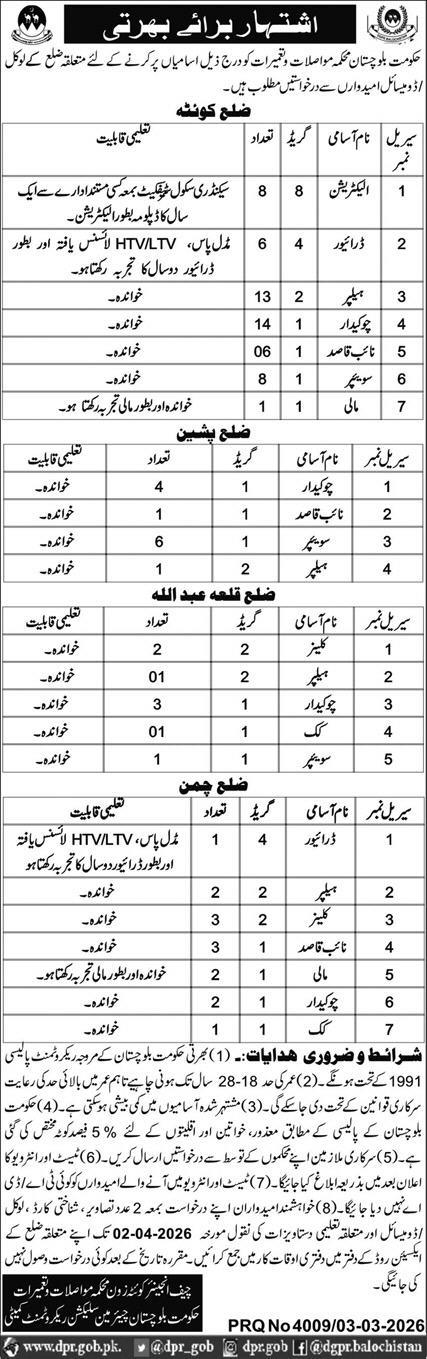 اشتہار برائے بھرتی
حکومت بلوچستان محکمہ مواصلات و تعمیرات کو درج ذیل اسامیاں پر کرنے کے لئے متعلقہ ضلع کے لوکل
/ ڈومیسائل امیدوارں سے درخواستیں مطلوب ہیں۔
ضلع کوئٹہ
سیریل نمبر نام آسامی گریڈ تعداد تعلیمی قابلیت
1 الیکٹریشن 8 8 سیکنڈری سکول سرٹیفکیٹ بمعہ کسی مستند ادارے سے ایک
سال کا ڈپلومہ بطور الیکٹریشن۔
2 ڈرائیور 4 6 مڈل پاس، HTV/LTV لائسنس یافتہ اور بطور
ڈرائیور دو سال کا تجربہ رکھتا ہو۔
3 ہیلپر 2 13 خواندہ۔
4 چوکیدار 1 14 خواندہ۔
5 نائب قاصد 1 06 خواندہ۔
6 سویپر 1 8 خواندہ۔
7 مالی 1 1 خواندہ اور بطور مالی تجربہ رکھتا ہو۔
ضلع پشین
سیریل نمبر نام آسامی گریڈ تعداد تعلیمی قابلیت
1 چوکیدار 1 4 خواندہ۔
2 نائب قاصد 1 1 خواندہ۔
3 سویپر 1 6 خواندہ۔
4 ہیلپر 2 1 خواندہ۔
ضلع قلعہ عبد اللہ
سیریل نمبر نام آسامی گریڈ تعداد تعلیمی قابلیت
1 کلینر 2 2 خواندہ۔
2 ہیلپر 2 01 خواندہ۔
3 چوکیدار 1 3 خواندہ۔
4 کک 1 01 خواندہ۔
5 سویپر 1 1 خواندہ۔
ضلع چمن
سیریل نمبر نام آسامی گریڈ تعداد تعلیمی قابلیت
1 ڈرائیور 4 1 مڈل پاس، HTV/LTV لائسنس یافتہ
اور بطور ڈرائیور دو سال کا تجربہ رکھتا ہو
2 ہیلپر 2 2 خواندہ۔
3 کلینر 2 3 خواندہ۔
4 نائب قاصد 1 3 خواندہ۔
5 مالی 1 2 خواندہ اور بطور مالی تجربہ رکھتا ہو۔
6 چوکیدار 1 2 خواندہ۔
7 کک 1 1 خواندہ۔
شرائط و ضروری ھدایات:۔ (1) بھرتی حکومت بلوچستان کے مروجہ ریکروٹمنٹ پالیسی
1991 کے تحت ہونگے۔ (2) عمر کی حد 18-28 سال تک ہونی چاہیے تاہم عمر میں بالائی حد کی رعایت
سرکاری قوانین کے تحت دی جاسکے گی۔ (3) مشتہر شدہ آسامیوں میں کمی بیشی ہو سکتی ہے۔ (4) حکومت
بلوچستان کے پالیسی کے مطابق معذور، خواتین اور اقلیتوں کے لئے 5 % فیصد کوٹہ مختص کی گئی
ہے۔ (5) سرکاری ملازمین اپنے محکموں کے توسط سے درخواستیں ارسال کریں۔ (6) ٹیسٹ اور انٹرویو کا
اعلان بعد میں بذریعہ ابلاغ کیا جائیگا۔ (7) ٹیسٹ اور انٹرویو میں آنے والے امیدواروں کو کوئی ٹی اے / ڈی
اے نہیں دیا جائیگا۔ (8) خواہشمند امیدواران اپنے درخواست بمعہ 2 عدد تصاویر، شناختی کارڈ، لوکل
/ ڈومیسائل اور متعلقہ تعلیمی دستاویزات کی نقول مورخہ 02-04-2026 تک اپنے متعلقہ ضلع کے
ایکسیئن روڈ کے دفتر میں دفتری اوقات کار میں جمع کرائیں۔ مقررہ تاریخ کے بعد کوئی درخواست وصول نہیں
کی جائیگی۔
چیف انجینئر کوئٹہ زون محکمہ مواصلات و تعمیرات
حکومت بلوچستان چیئرمین سلیکشن ریکروٹمنٹ کمیٹی
PRQ No 4009/03-03-2026
www.dpr.gob.pk. @dpr_gob @dgpr.balochistan